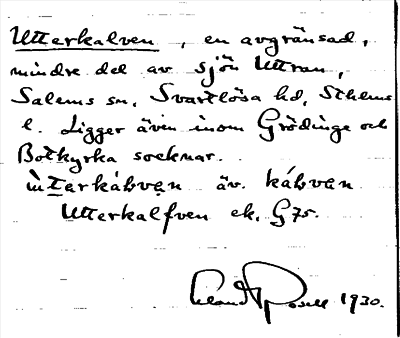 Utterkalven, en avgränsad,
mindre del av sjön Uttran,
Salems sn, Svartlösa hd, Sthlms
l. Ligger även inom Grödinge och
Botkyrka socknar.
ùterkáƀvạn äv. káƀvạn
Utterkalfven ek. G75.
Rosell 1930.